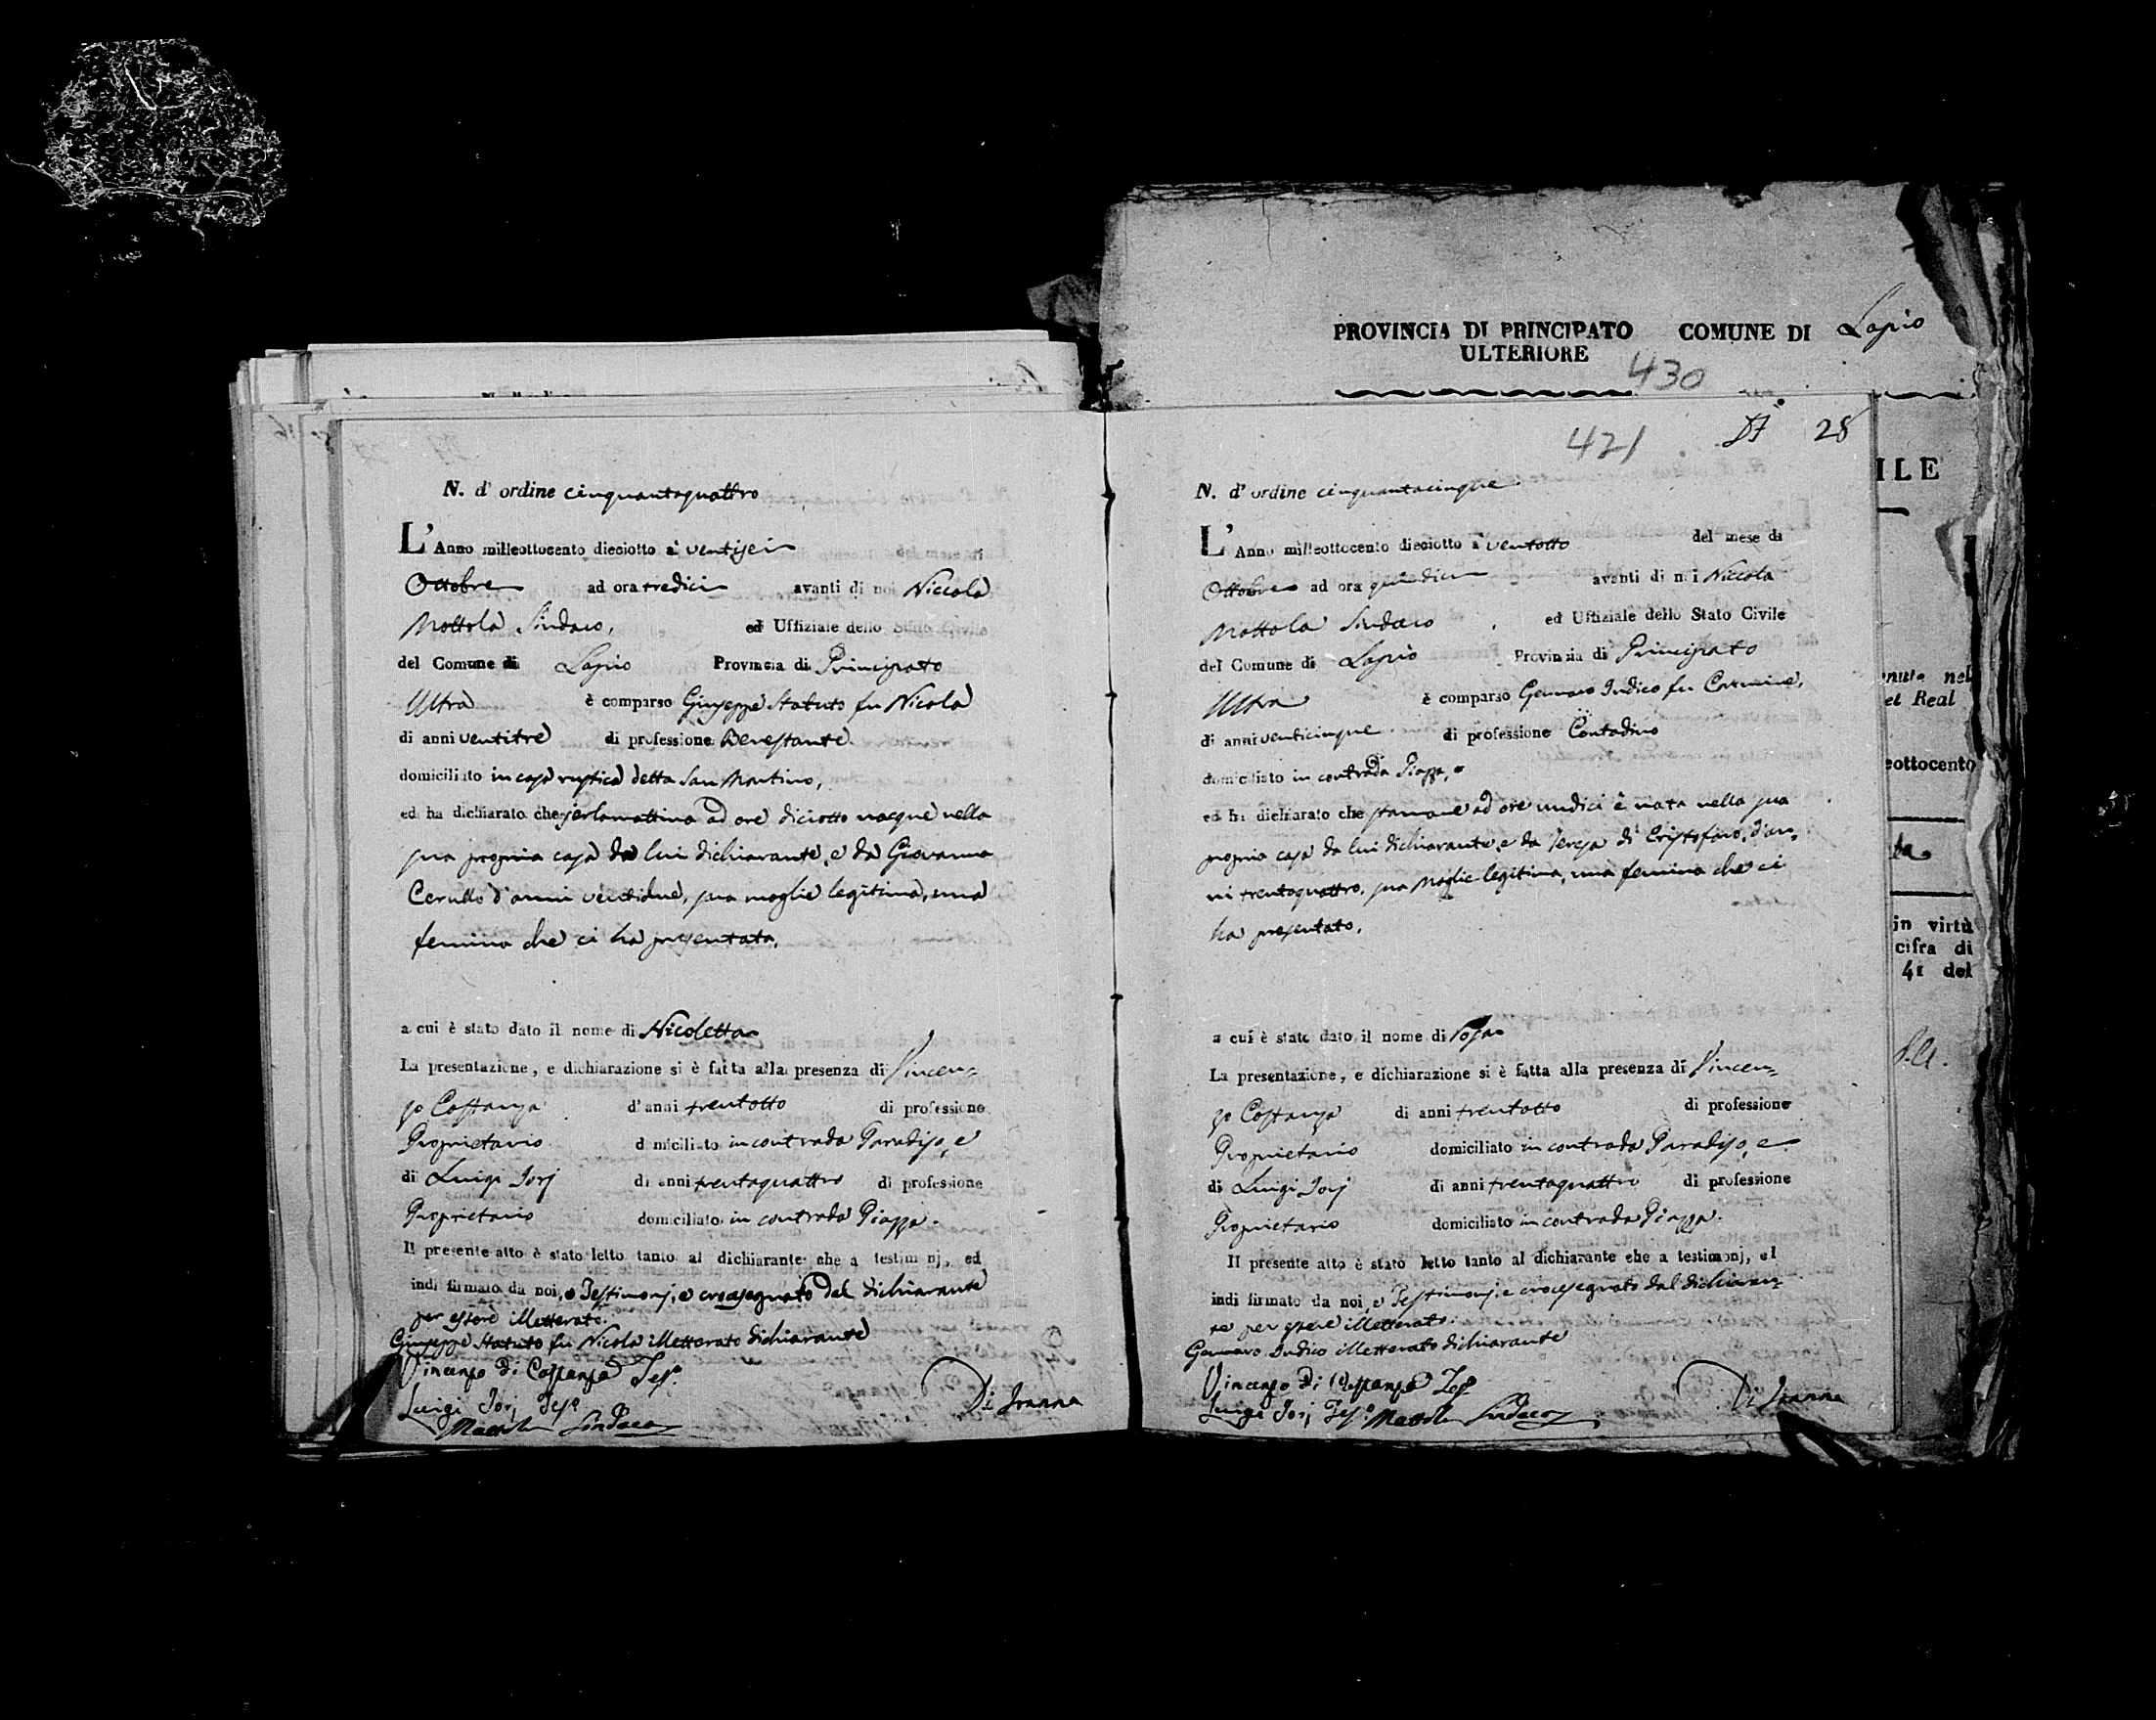 PROVINCIA DI PRINCIPATO ULTERIORE COMUNE DI Lapio
430
ILE
N. d'ordine cinquantaquattro
L'Anno milleottocento dieciotto a' ventisei
Ottobre ad ora tredici avanti di noi Niccola
Mottola Sindaco, ed Uffiziale dello Stato Civile
del Comune di Lapio Provincia di Principato
Ultra è comparso Giuseppe Statuto fu Nicola
di anni ventitre di professione Benestante
domiciliato in casa rustica detta San Martino,
ed ha dichiarato che jerlamattina ad ore diciotto nacque nella
sua propria casa da lui dichiarante, e da Giovanna
Cerullo d'anni ventidue, sua moglie legitima, una
femina che ci ha presentata.
a cui è stato dato il nome di Nicoletta
La presentazione, e dichiarazione si è fatta alla presenza di Vincen=
zo Costanza d'anni trentotto di professione
Proprietario domiciliato in contrada Paradiso, e
di Luigi Iorj di anni trentaquattro di professione
Proprietario domiciliato in contrada Piazza.
Il presente atto è stato letto tanto al dichiarante che a testimonj, ed
indi firmato da noi, e Testimonj, e crocesegnato dal dichiarante
per essere illetterato.
Giuseppe Statuto fu Nicola illetterato dichiarante
Vincenzo Di Costanza Tes.º
Luigi Iorj Tes.º
Mottola Sindaco
Di Ioanna
421 28
N. d'ordine cinquantacinque
L'Anno milleottocento dieciotto a' ventotto del mese di
Ottobre ad ora quindici avanti di noi Niccola
Mottola Sindaco ed Uffiziale dello Stato Civile
del Comune di Lapio Provinzia di Principato
Ultra è comparso Gennaro Indico fu Carmine,
di anni venticinque di professione Contadino
domiciliato in contrada Piazza,
ed ha dichiarato che stamane ad ore undici è nata nella sua
propria casa da lui dichiarante, e da Teresa di Cristofaro, d'an=
ni trentaquattro, sua Moglie legitima, una femina che ci
ha presentato.
a cui è stato dato il nome di Rosa
La presentazione, e dichiarazione si è fatta alla presenza di Vincen=
zo Costanza di anni trentotto di professione
Proprietario domiciliato in contrada Paradiso, e
di Luigi Iorj di anni trentaquattro di professione
Proprietario domiciliato in contrada Piazza.
Il presente atto è stato letto tanto al dichiarante che a testimonj, ed
indi firmato da noi, e Testimonj, e crocesegnato dal dichiaran=
te per essere illetterato.
Gennaro Indico illetterato dichiarante
Vincenzo Di Costanza Tes.º
Luigi Iorj Tes.º Mottola Sindaco
Di Ioanna
nel
el Real
eottocento
in virtù
cifra di
41 del